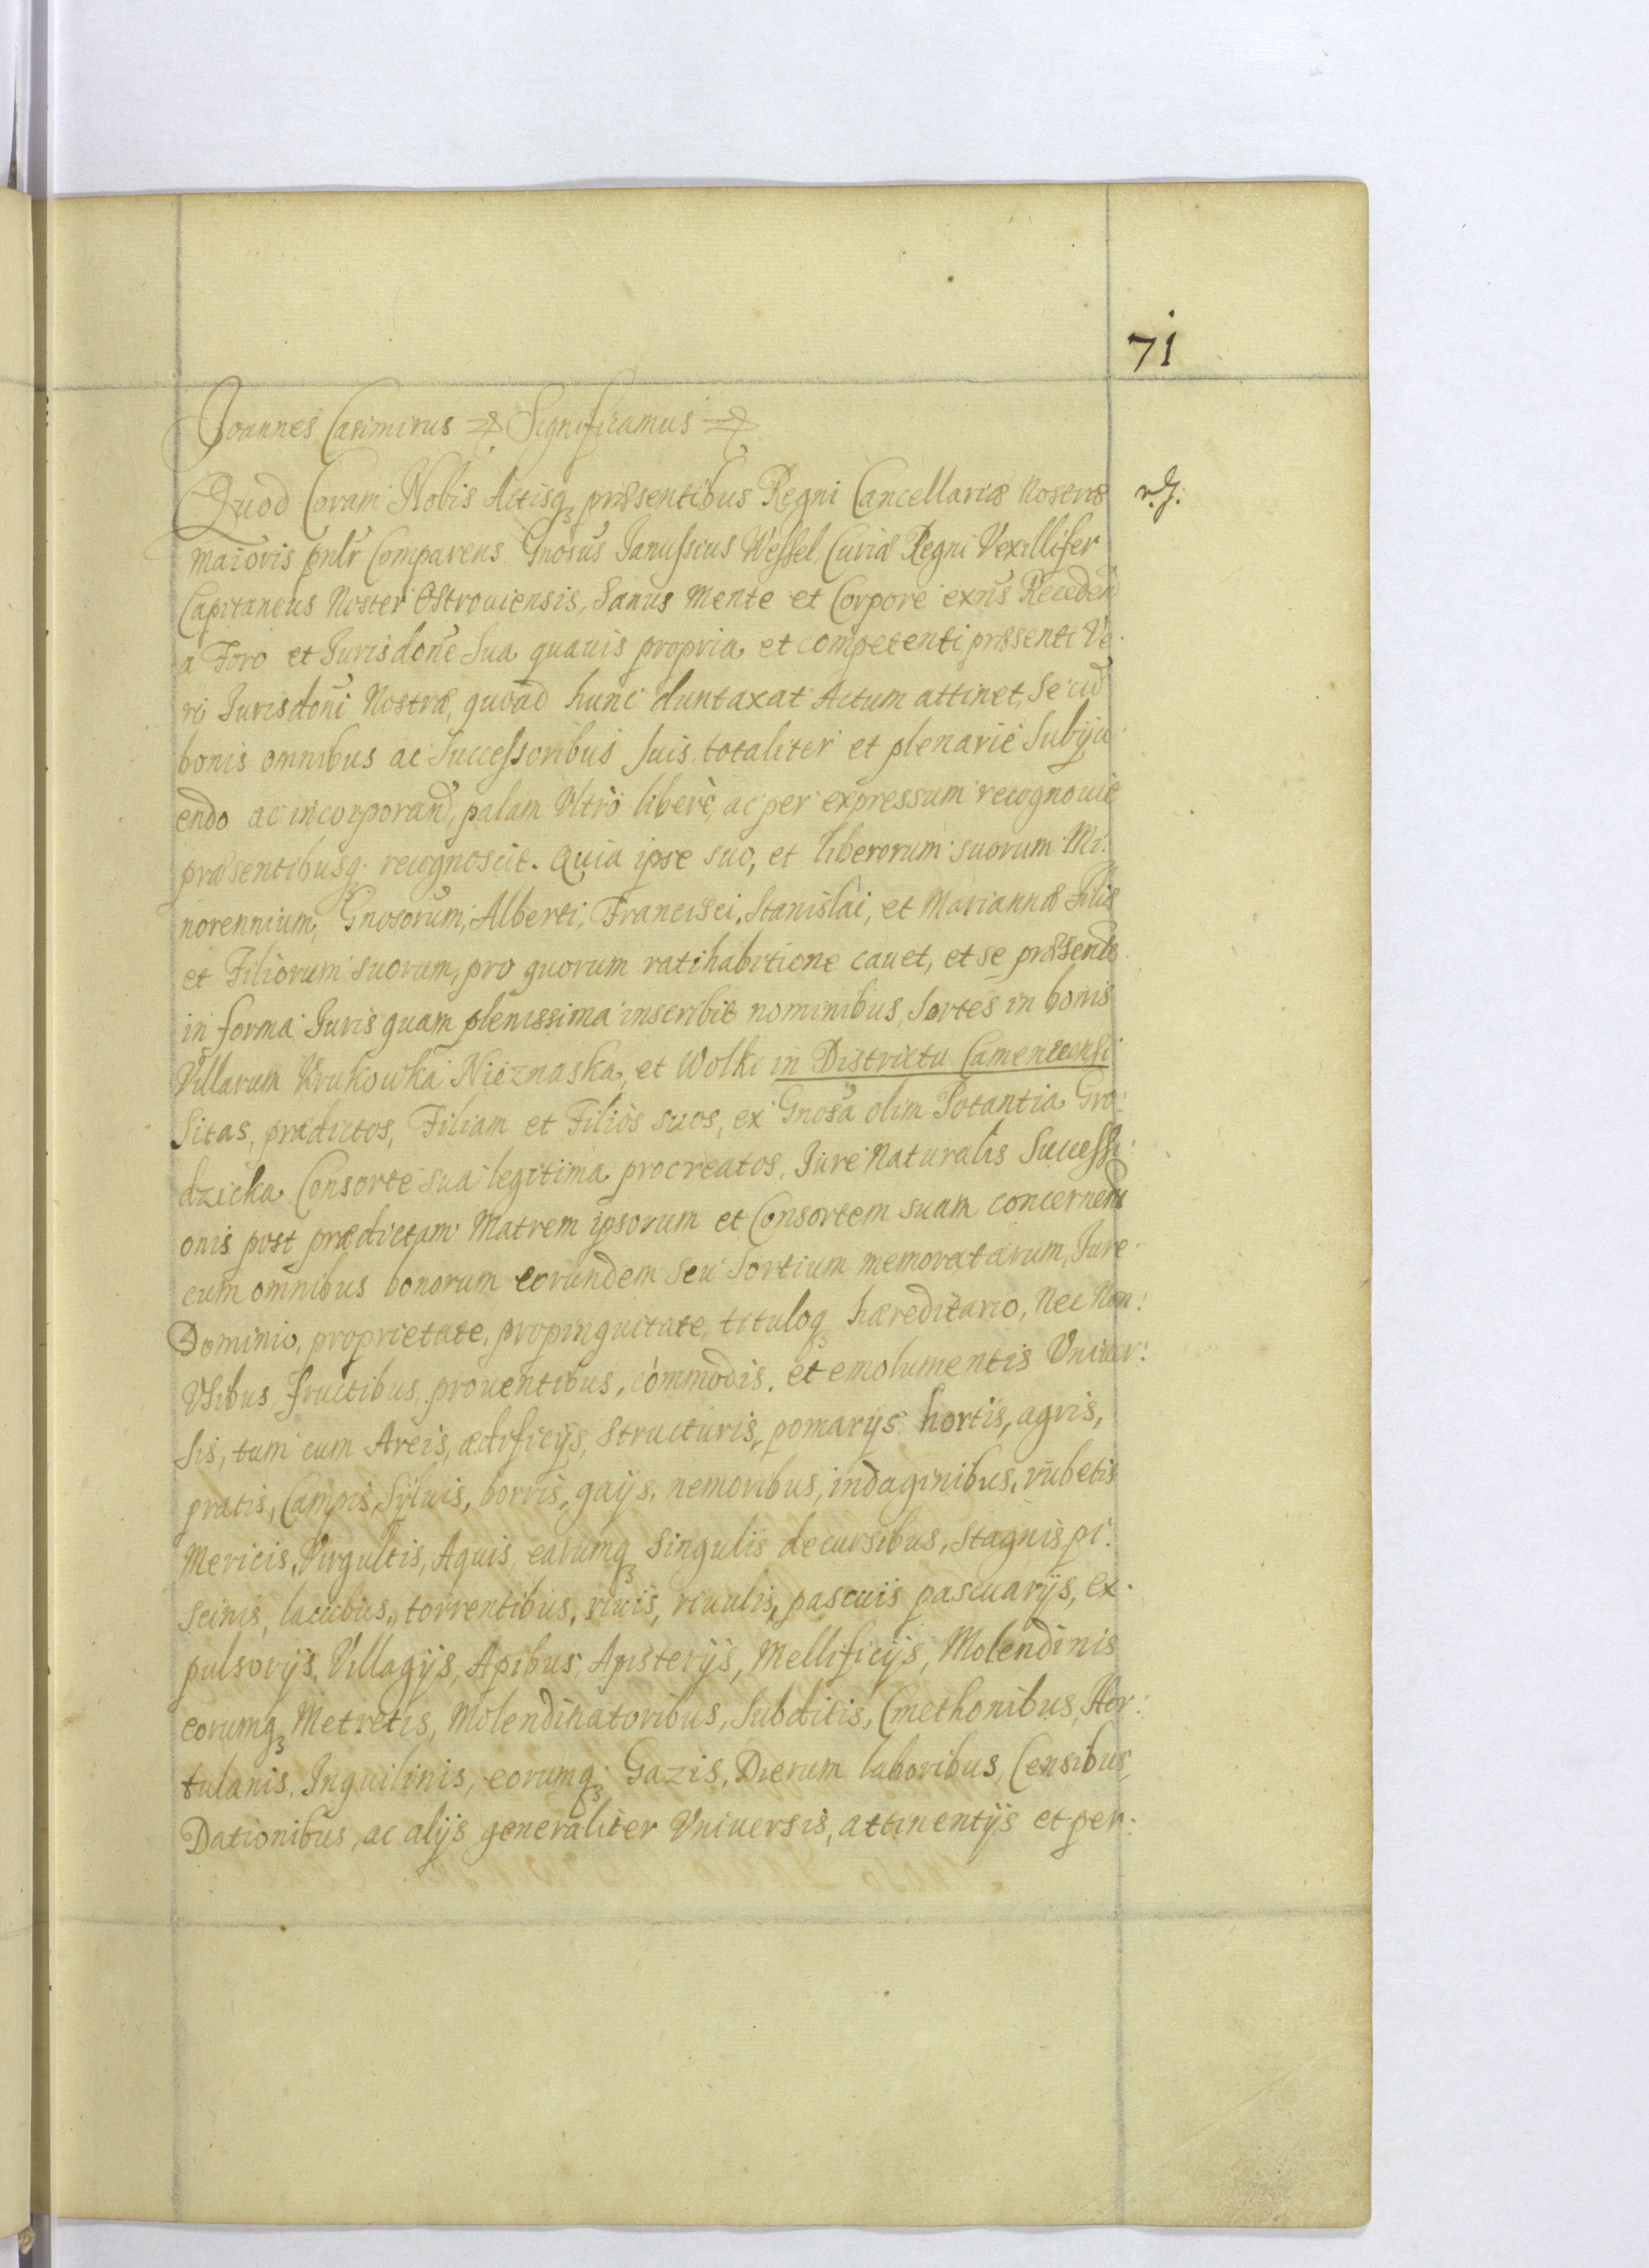 71
Joannes Casimirus Significamus
Quod Coram Nobis Actisq, præsentibus Regni Cancellariæ Nostræ
r. J.
Maioris pnlr Comparens Gnosus Janussius Wessel Curiæ Regni Vexillifer
Capitaneus Noster Ostrouiensis, Sanus Mente et Corpore exns Receden
a Foro et Jurisdone Sua quauis propria et competenti præsenti Ve.
ro Jurisdoni Nostræ, quoad hunc duntaxat Actum attinet, Se cu
bonis omnibus ac Successoribus suis totaliter et plenarie Subijci
endo ac incorporand, palam Vltrò liberè, ac per expressum recognouit
præsentibusq. recognoscit. Quia ipse suo, et liberorum suorum Mi:
norennium, Gnosorum, Alberti, Francisci, Stanislai, et Mariannæ Filiæ
et Filiorum suorum, pro quorum ratihabitione cauet, et se præsente
in forma Juris quam plenissima inscribit nominibus, Sortes in bonis
Villarum Krukowka Nieznaska, et Wolki in Districtu Camenecensi
Sitas, prædictos, Filiam et Filiòs suos, ex Gnosa olim Potantia Gro:
dzicka Consorte sua legitima procreatos, Jure Naturalis Successi:
onis post prædictam Matrem ipsorum et Consortem suam concernens
cum omnibus bonorum eorundem seu Sortium memoratarum, Jure
Dominio, proprietate, propinquitate, tituloq, hæreditario, Nec Non:
Vsibus fructibus, prouentibus, commodis, et emolumentis Vniuer:
sis, tum cum Areis, ædificijs, Structuris, pomarijs hortis, agris,
pratis, Campis, Syluis, borris, gaijs, nemoribus, indaginibus, rubetis
Mericis, Virgultis, Aquis, earumq, Singulis decursibus, Stagnis, pi:
scinis, lacubus, torrentibus, riuis, riuulis, pascuis pascuarijs, ex.
pulsorijs, Villagijs, Apibus, Apisterijs, Mellificijs, Molendinis
eorumq, Metretis, Molendinatoribus, Subditis, Cmethonibus, Hor:
tulanis, Inquilinis, eorumq, Gazis, Dierum laboribus, Censibus,
Dationibus, ac alijs generaliter Vniuersis, attinentijs et per: